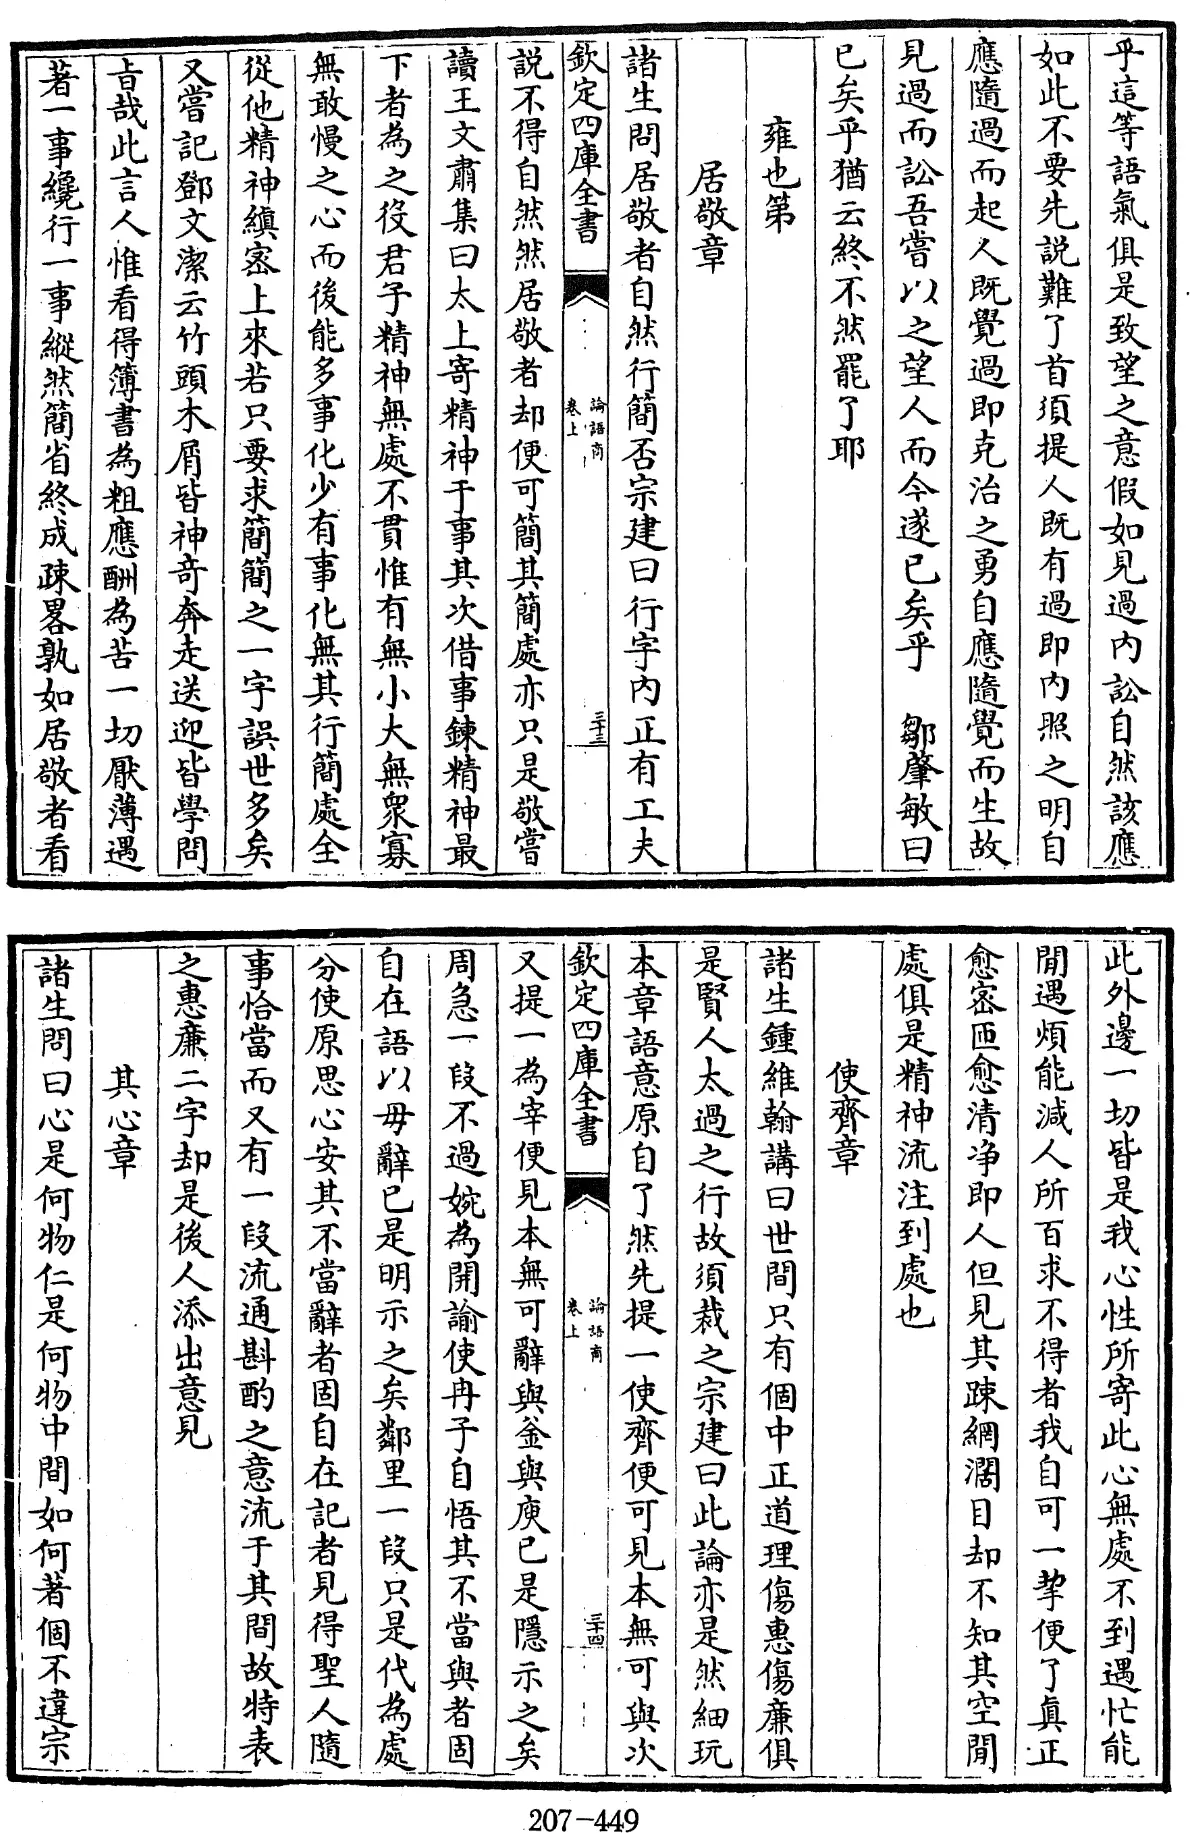 乎這等語氣俱是致望之意假如見過內訟自然該應
如此不要先説難了首須提人既有過即內照之明自
應隨過而起人既覺過即克治之勇自應隨覺而生故
見過而訟吾嘗以之望人而今遂已矣乎　鄒肇敏曰
已矣乎猶云終不然罷了耶
雍也第
居敬章
諸生問居敬者自然行簡否宗建曰行字內正有工夫
欽定四庫全書
論語商
卷上
三十三
説不得自然然居敬者却便可簡其簡處亦只是敬嘗
讀王文肅集曰太上寄精神于事其次借事鍊精神最
下者為之役君子精神無處不貫惟有無小大無衆寡
無敢慢之心而後能多事化少有事化無其行簡處全
從他精神縝密上來若只要求簡簡之一字誤世多矣
又嘗記鄧文潔云竹頭木屑皆神竒奔走送迎皆學問
旨哉此言人惟看得簿書為粗應酬為苦一切厭薄遇
著一事纔行一事縱然簡省終成疎畧孰如居敬者看
此外邊一切皆是我心性所寄此心無處不到遇忙能
閒遇煩能減人所百求不得者我自可一挈便了真正
愈密匝愈清净即人但見其疎網濶目却不知其空閒
處俱是精神流注到處也
使齊章
諸生鍾維翰講曰世間只有個中正道理傷惠傷廉俱
是賢人太過之行故須裁之宗建曰此論亦是然細玩
本章語意原自了然先提一使齊便可見本無可與次
欽定四庫全書
論語商
卷上
三十四
又提一為宰便見本無可辭與釜與庾已是隱示之矣
周急一段不過婉為開諭使冉子自悟其不當與者固
自在語以毋辭已是明示之矣鄰里一段只是代為處
分使原思心安其不當辭者固自在記者見得聖人隨
事恰當而又有一段流通斟酌之意流于其間故特表
之惠廉二字却是後人添出意見
其心章
諸生問曰心是何物仁是何物中間如何著個不違宗
207-449